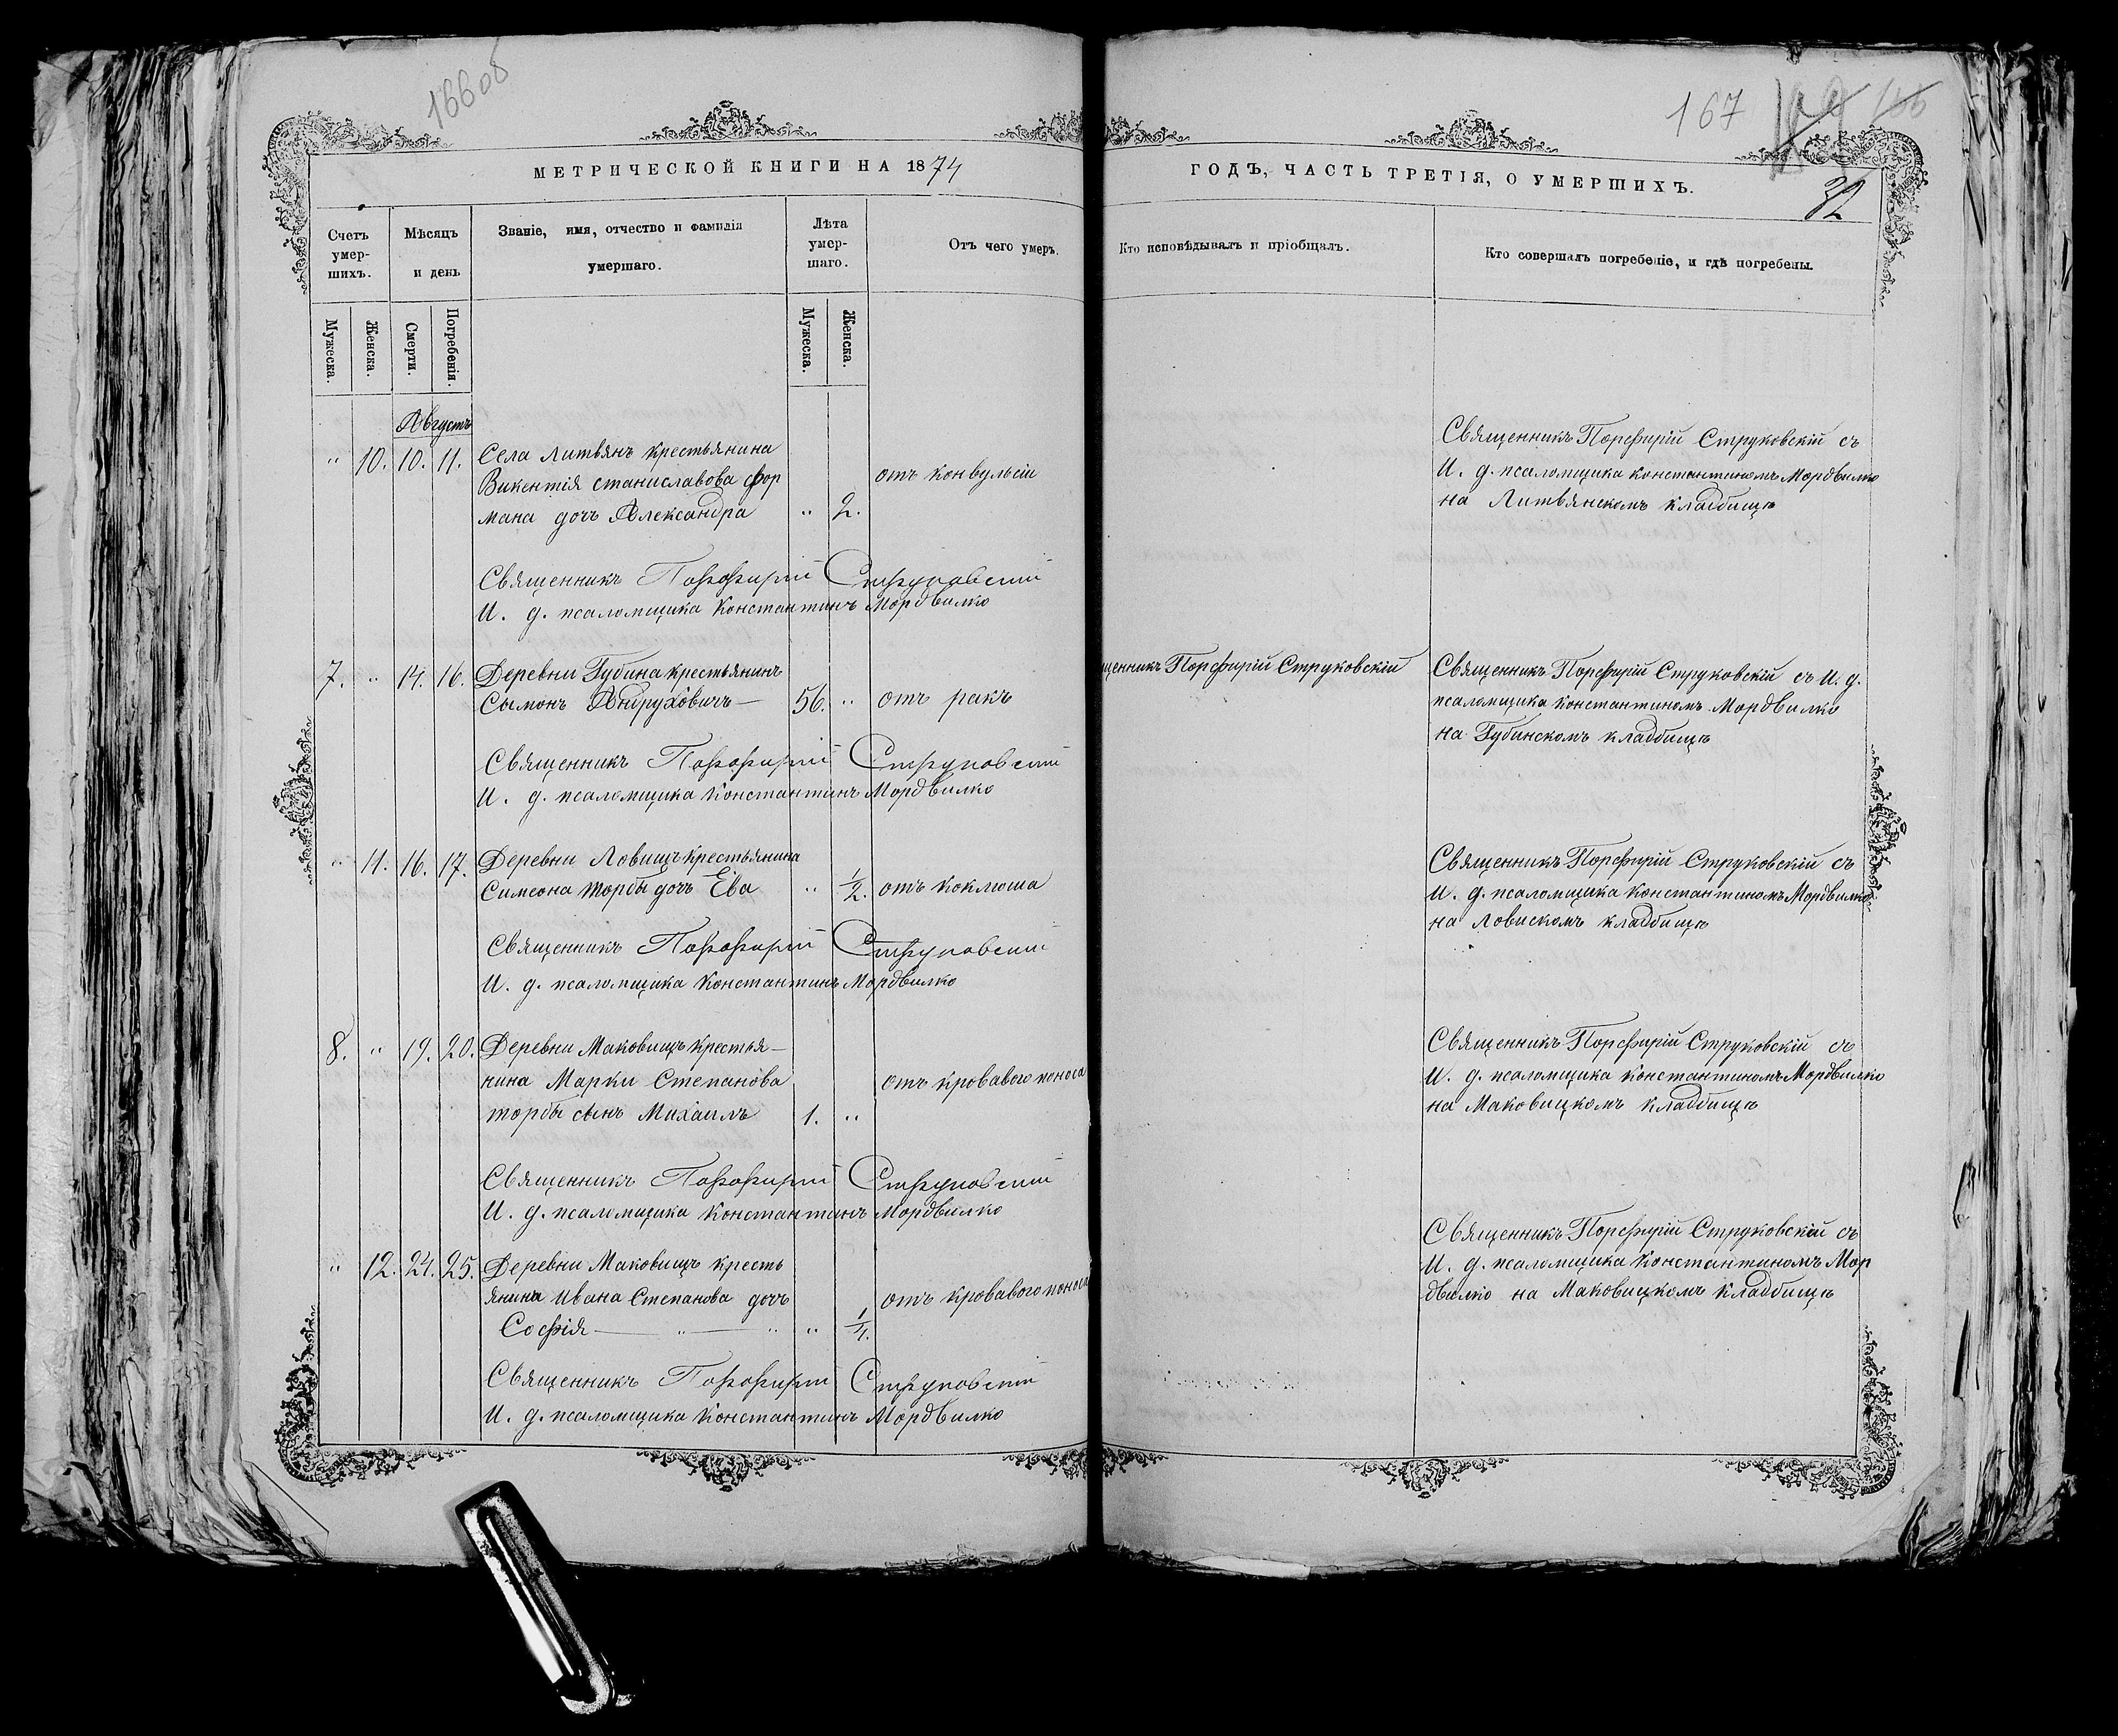 166об
167
32
МЕТРИЧЕСКОЙ КНИГИ НА 1874
ГОДЪ, ЧАСТЬ ТРЕТІЯ, О УМЕРШИХЪ.
Счетъ умер-шихъ.
Мѣсяцъ и день
Званіе, имя, отчество и фамилія
умершаго.
Лѣта умер-шаго.
Отъ чего умеръ.
Кто исповѣдывалъ и пріобщалъ.
Кто совершалъ погребеніе, и гдѣ погребены.
Мужеска.
Женска.
Смерти.
Погребенія.
Мужеска.
Женска.
Августъ
" 10. 10. 11. Села Литвянъ крестьянина
Викентія Станиславова Фор
мана дочь Александра " 2.
отъ конвульсіи
Священникъ Порфирій Струковскій съ
И. д. псаломщика Константиномъ Мордвилко
на Литвянскомъ кладбищѣ
Священникъ Порфирій Струковскій
И. д. псаломщика Константинъ Мордвилко
7. " 14. 16. Деревни Губина крестьянинъ
Сымонъ Андруховичъ — 56. " отъ ракъ
щенникъ Порфирій Струковскій
Священникъ Порфирій Струковскій съ И. д.
псаломщика Константиномъ Мордвилко
на Губинскомъ кладбищѣ
Священникъ Порфирій Струковскій
И. д. псаломщика Константинъ Мордвилко
" 11. 16. 17. Деревни Ловищъ крестьянина
Симеона Торбы дочь Ева " 1/2. отъ коклюша
Священникъ Порфирій Струковскій съ
И. д. псаломщика Константиномъ Мордвилко
на Ловискомъ кладбищѣ
Священникъ Порфирій Струковскій
И. д. псаломщика Константинъ Мордвилко
8. " 19. 20. Деревни Маковищъ крестья-
нина Марки Степанова
Торбы сынъ Михаилъ 1. "
отъ кроваваго поноса
Священникъ Порфирій Струковскій съ
И. д. псаломщика Константиномъ Мордвилко
на Маковицкомъ кладбищѣ
Священникъ Порфирій Струковскій
И. д. псаломщика Константинъ Мордвилко
" 12. 24. 25. Деревни Маковищъ кресть
янина Ивана Степанова дочь
Софія — " — " " 1/4.
отъ кроваваго поноса
Священникъ Порфирій Струковскій съ
И. д. псаломщика Константиномъ Мор
двилко на Маковицкомъ кладбищѣ
Священникъ Порфирій Струковскій
И. д. псаломщика Константинъ Мордвилко